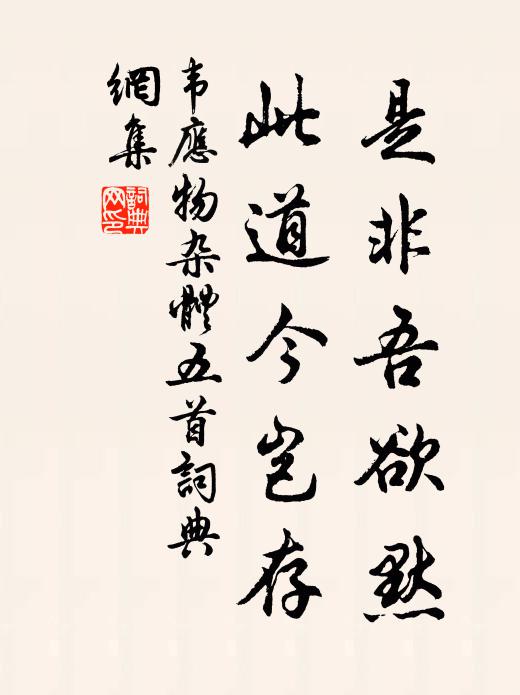 是非吾欲默
此道今岂存
韦應物杂體五首詞典
網集
詞典
网印